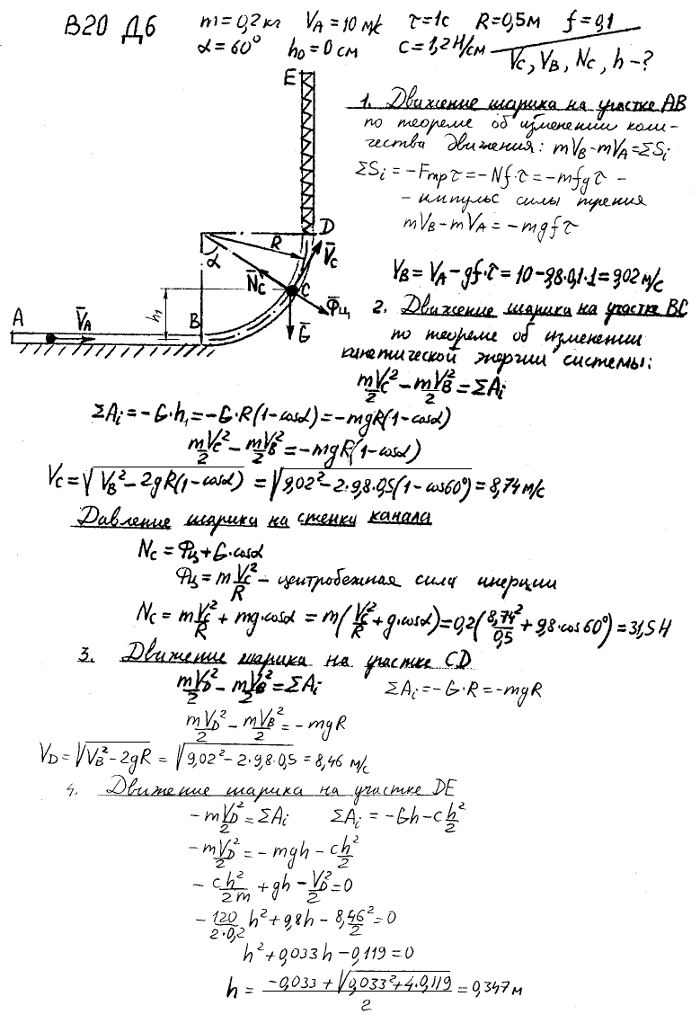 В20 Д6 m=0,2кг V_A=10 м/с τ=1с R=0,5м f=0,1
α=60° h₀=0 см c=1,2 Н/см V_C, V_B, N_C, h-?
E
1. Движение шарика на участке АВ
по теореме об изменении коли-
чества движения: mV_B-mV_A=ΣS_i
ΣS_i=-F_тр τ=-Nf·τ=-mfgτ -
- импульс силы трения
mV_B-mV_A=-mgfτ
D
R
V̄_C
α
N̄_C
C
Φ̄_ц
V_B=V_A-gf·τ=10-9,8·0,1·1=9,02 м/с
h₁
B
Ḡ
A
V̄_A
2. Движение шарика на участке ВС
по теореме об изменении
кинетической энергии системы:
mV_C²/2-mV_B²/2=ΣA_i
ΣA_i=-G·h₁=-G·R(1-cosα)=-mgR(1-cosα)
mV_C²/2-mV_B²/2=-mgR(1-cosα)
V_C=√(V_B²-2gR(1-cosα))=√(9,02²-2·9,8·0,5(1-cos60°))=8,74 м/с
Давление шарика на стенки канала
N_C=Φ_ц+G·cosα
Φ_ц=mV_C²/R - центробежная сила инерции
N_C=mV_C²/R+mg·cosα=m(V_C²/R+g·cosα)=0,2(8,74²/0,5+9,8·cos60°)=31,5Н
3. Движение шарика на участке CD
mV_D²/2-mV_B²/2=ΣA_i ΣA_i=-G·R=-mgR
mV_D²/2-mV_B²/2=-mgR
V_D=√(V_B²-2gR)=√(9,02²-2·9,8·0,5)=8,46 м/с
4. Движение шарика на участке DE
-mV_D²/2=ΣA_i ΣA_i=-Gh-ch²/2
-mV_D²/2=-mgh-ch²/2
-ch²/2m+gh-V_D²/2=0
-120/2·0,2 h²+9,8h-8,46²/2=0
h²+0,033h-0,119=0
h=(-0,033+√(0,033²+4·0,119))/2=0,347м